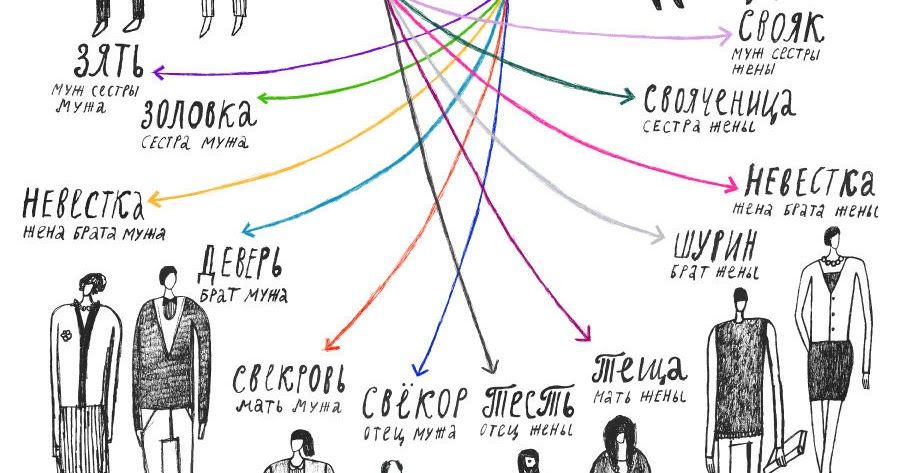 СВОЯК
МУЖ СЕСТРЫ
ЖЕНЫ
ЗЯТЬ
МУЖ СЕСТРЫ
МУЖА
СВОЯЧЕНИЦА
СЕСТРА ЖЕНЫ
ЗОЛОВКА
СЕСТРА МУЖА
НЕВЕСТКА
ЖЕНА БРАТА ЖЕНЫ
НЕВЕСТКА
ЖЕНА БРАТА МУЖА
ШУРИН
БРАТ ЖЕНЫ
ДЕВЕРЬ
БРАТ МУЖА
СВЕКРОВЬ
МАТЬ МУЖА
СВЁКОР
ОТЕЦ МУЖА
ТЕСТЬ
ОТЕЦ ЖЕНЫ
ТЕЩА
МАТЬ ЖЕНЫ